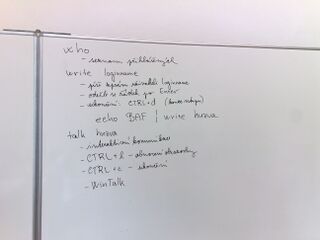 who
- seznam přihlášených
write loginname
- píše zprávu uživateli loginname
- odešle se řádek po Enter
- ukončení: CTRL+d (konec vstupu)
echo BAF | write hawa
talk hawa
- interaktivní komunikace
- CTRL+l - obnovení obrazovky
- CTRL+c - ukončení
- WinTalk